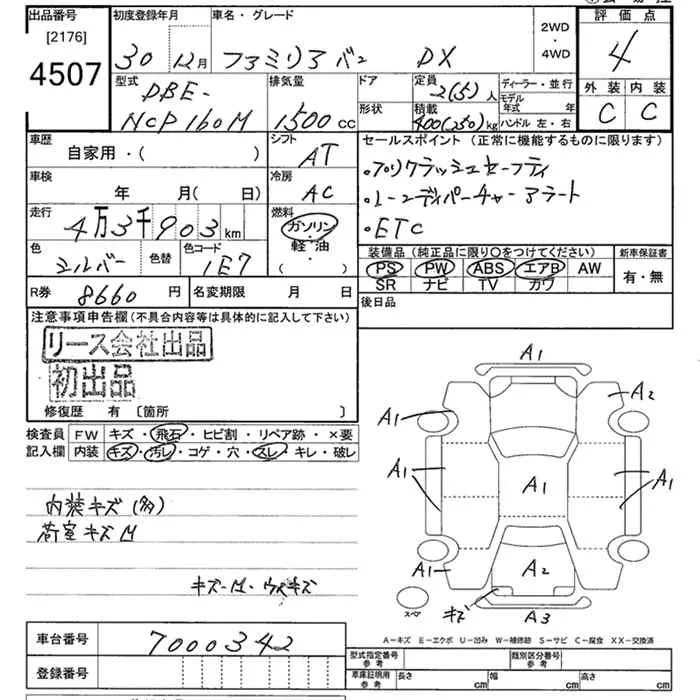 出品番号 初度登録年月 車名・グレード 2WD・4WD 評価点
[2176]
4507 30 12月 ファミリアバン DX 4
型式 排気量 ドア 定員 ディーラー・並行 外装 内装
DBE- 2(5)人 モデル年式 年
NCP160M 1500cc 形状 積載 400(250)kg ハンドル 左・右 C C
車歴 自家用・( ) シフト AT セールスポイント (正常に機能するものに限ります)
車検 年 月( ) 冷房 AC ・プリクラッシュセーフティ
・レーンディパーチャーアラート
走行 4万3千903km 燃料 ガソリン・軽・油・( ) ・ETC
色 シルバー 色替 色コード 1E7 装備品(純正品に限り〇をつけてください) 新車保証書
PS PW ABS エアB AW 有・無
SR ナビ TV カワ
R券 8660円 名変期限 月 日 後日品
注意事項申告欄(不具合内容等は具体的に記入して下さい)
リース会社出品
初出品
修復歴 有 〔箇所 〕
検査員 FW キズ・飛石・ヒビ割・リペア跡・×要
記入欄 内装 キズ・汚レ・コゲ・穴・スレ・キレ・破レ
内装キズ(多)
荷室キズM
キズ-M・ウスキズ
A1
A1 A2
A1 A1 A1
A1 A2
キズ A3
スペア
A-キズ E-エクボ U-凹み W-補修跡 S-サビ C-腐食 XX-交換済
車台番号 7000342
型式指定番号 参考 類別区分番号 参考
登録番号
車庫証明用 参考 長さ cm 幅 cm 高さ cm